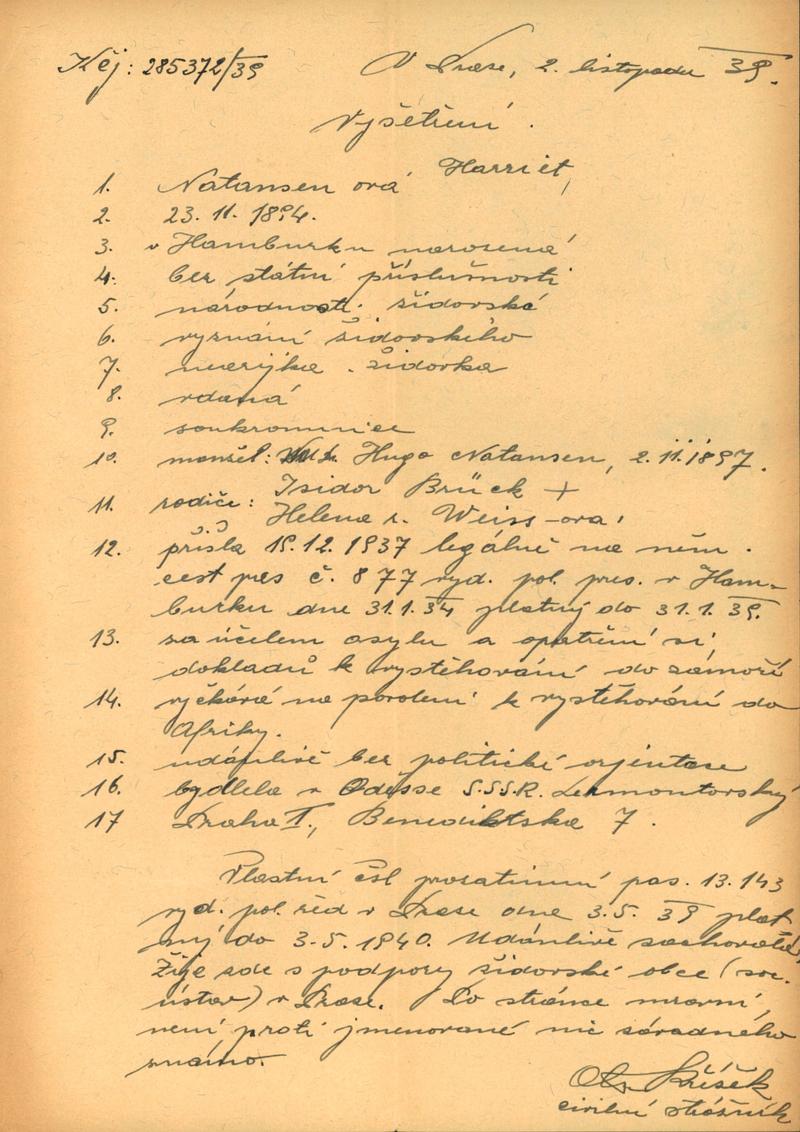 Kčj: 285372/39 V Praze, 2. listopadu 39.
Vyšetření.
1. Natansen ová Harriet,
2. 23. 11. 1894.
3. v Hamburku narozená
4. bez státní příslušnosti
5. národnosti židovské
6. vyznání židovského
7. neárijka. židovka
8. vdaná
9. soukromnice
10. manžel: Hugo Natansen, 2. 11. 1897.
11. rodiče: Isidor Brück +
Helena r. Weiss-ova,
12. přišla 19.12.1937 legálně na něm.
cest pas č. 877 vyd. pol. pres. v Ham-
burku dne 31.1.34 platný do 31.1.39.
13. za účelem asylu a opatření si
dokladů k vystěhování do zámoří
14. vyčkává na povolení k vystěhování do
Afriky.
15. údánlivě bez politické orjentace
16. bydlela v Oděsse S.S.S.R. Lermontovský
17 Praha I., Benediktska 7.
Vlastní čsl prozatimní pas. 13.143
vyd. pol. řed v Praze dne 3.5.39 plat
ný do 3-5.1940. Udánlivě zachovalá,
Žije zde s podpory židovské obce (soc.
ústav) v Praze. Po stránce mravní,
není proti jmenované nic závadného
známo.
Kříšek
civilní strážník